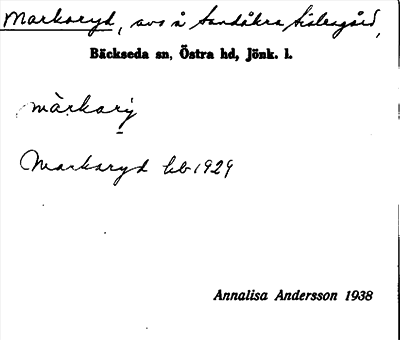 Markaryd, avs å Sandåkra sidengård,
Bäckseda sn, Östra hd, Jönk. l.
màrkarẏ
Markaryd kb 1929
Annalisa Andersson 1938